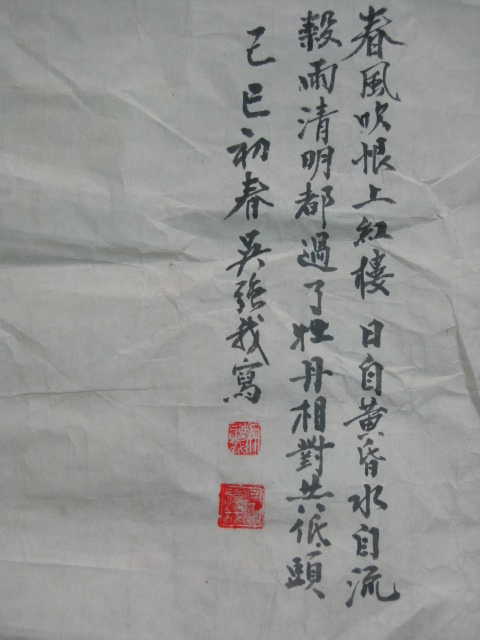 春風吹恨上紅樓日自黃昏水自流
穀雨清明都過了牡丹相對共低頭
己巳初春吳強我寫